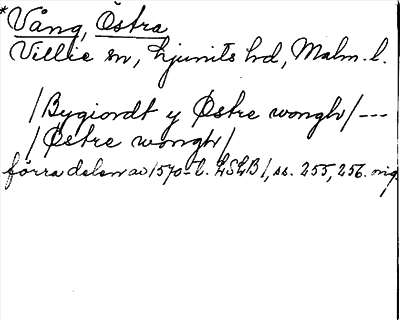 *Vång, Östra
Villie sn, Ljunits hd, Malm. l.
/Bygiordt y Østre wongh/---
/Østre wongh/
förra delen av 1570-t. LSLB/, ss. 255, 256. orig.